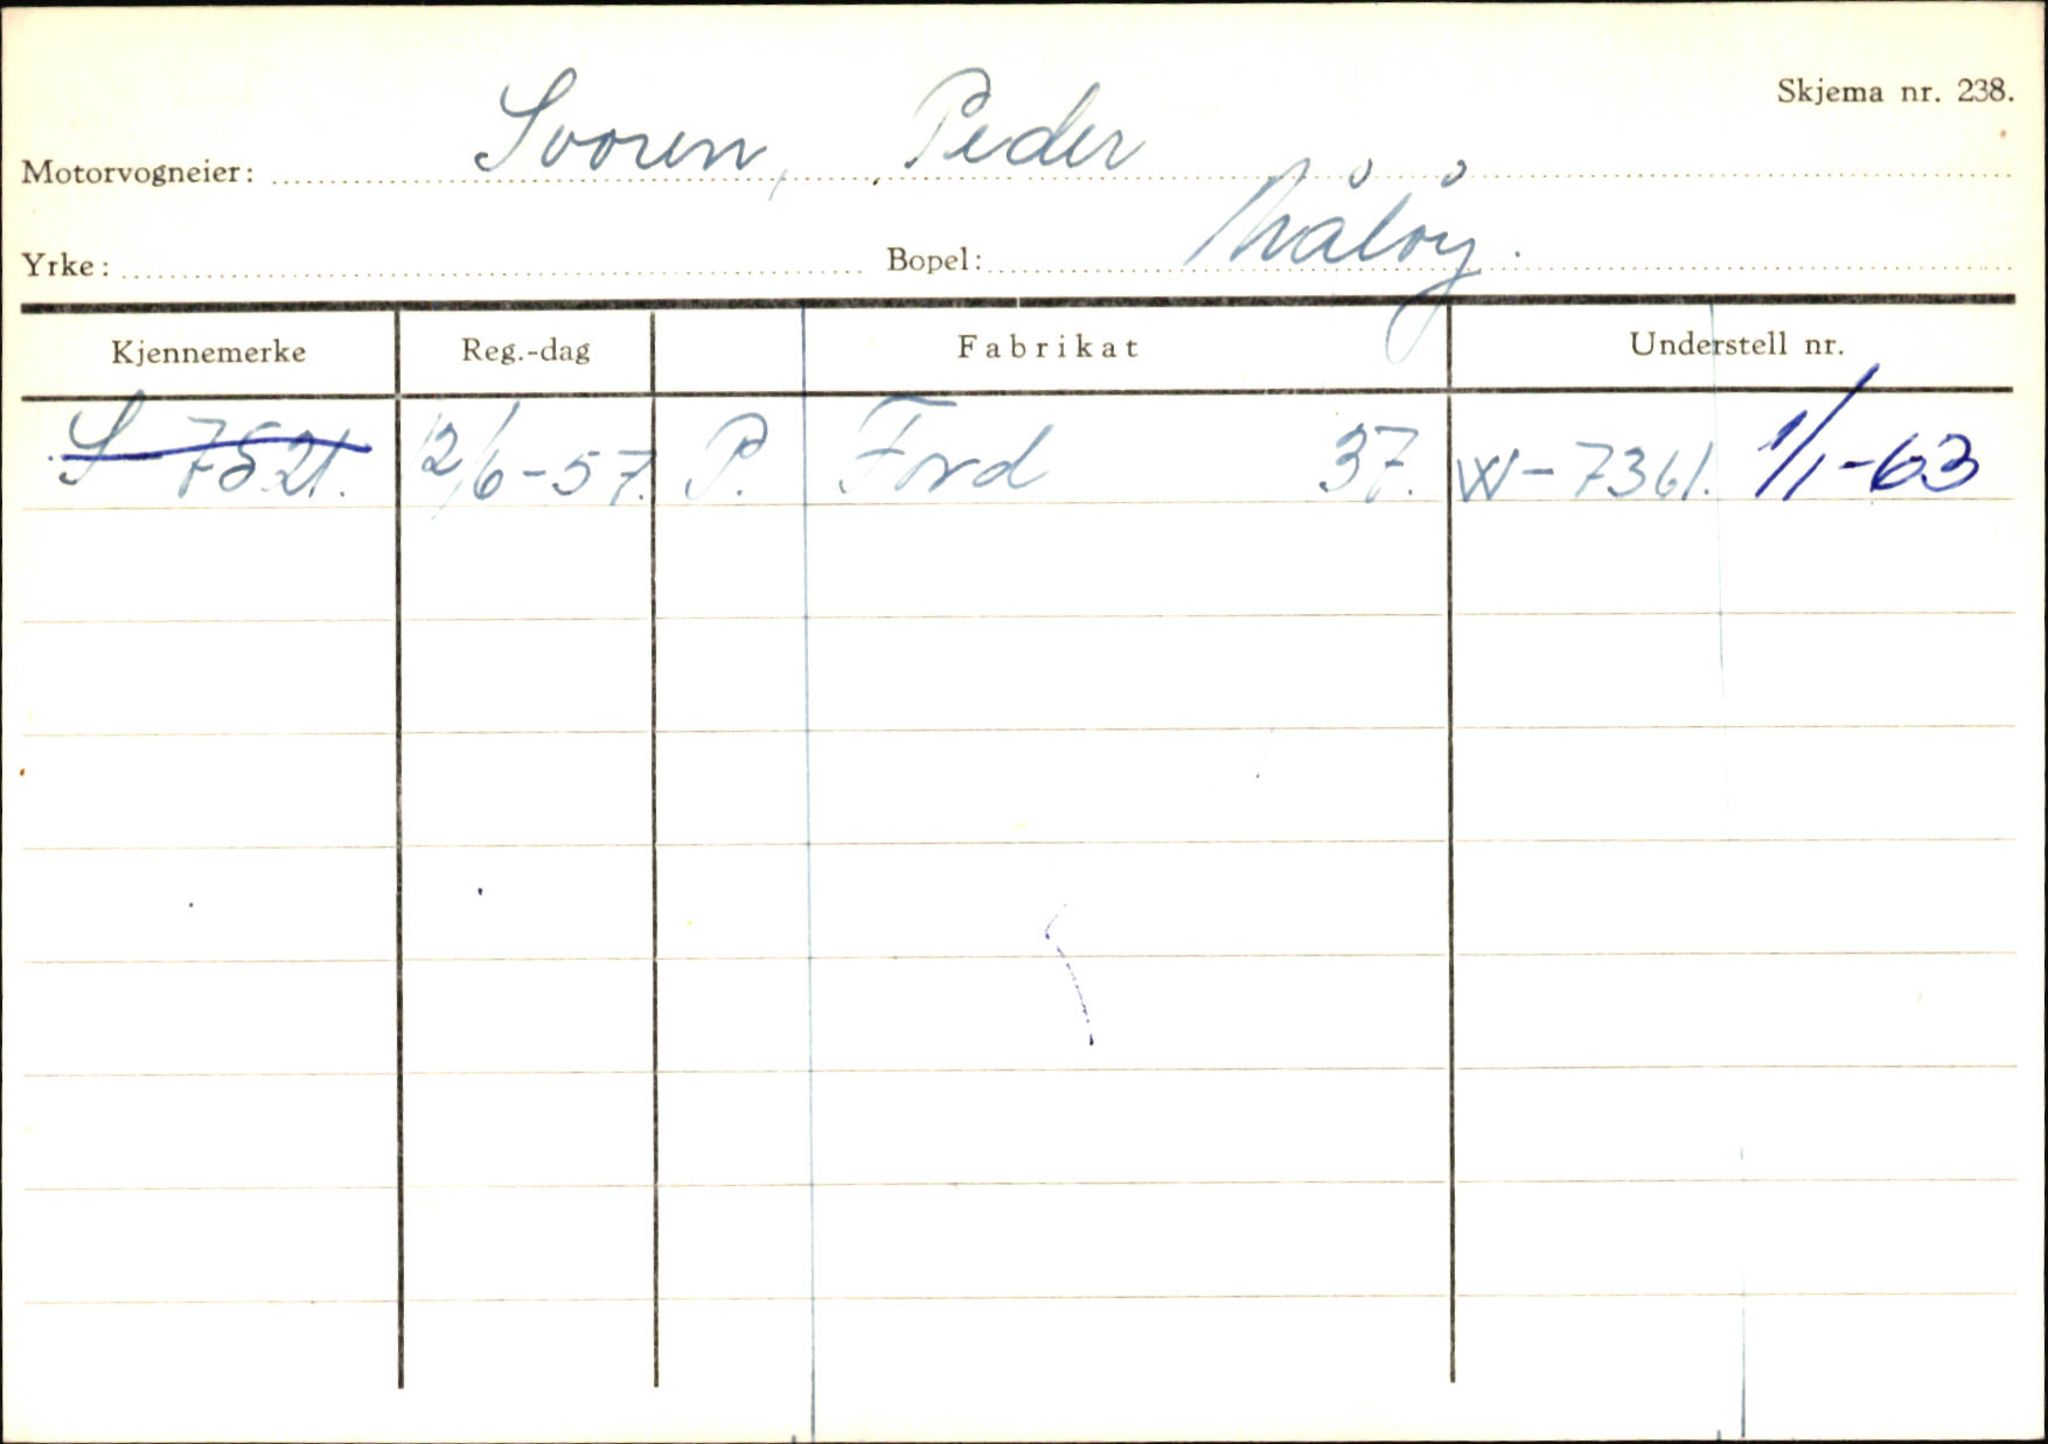 Skjema nr. 238.
Motorvogneier: Svoren, Peder
Yrke: Bopel: Måløy.
Kjennemerke Reg.-dag Fabrikat Understell nr.
S 7521. 12/6-57. P. Ford 37. W-7361. 1/1-63